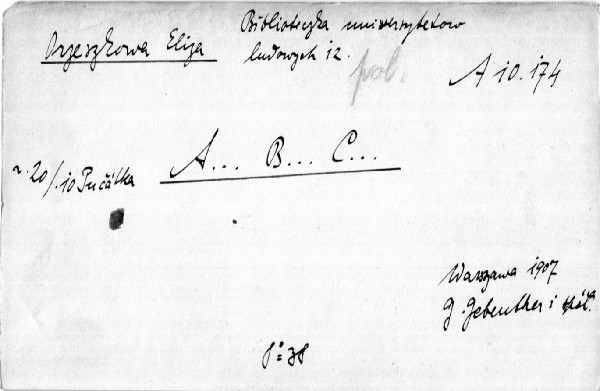 Orzeszkowa Eliza
Biblioteczka uniwersytetów
ludowych 12.
pol.
A 10.174
A... B... C...
r. 20/10 Pučálka
Warszawa 1907
G. Gebenther i spół.
8°: 38